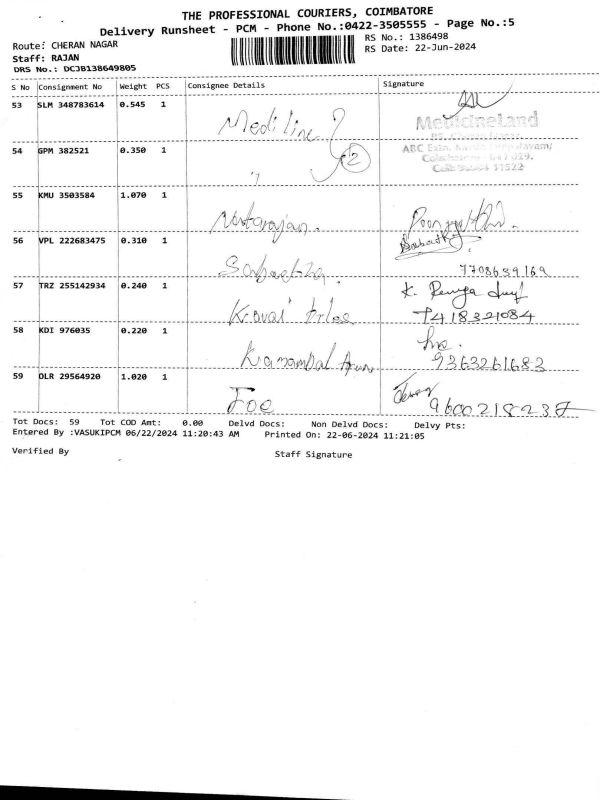 THE PROFESSIONAL COURIERS, COIMBATORE
Delivery Runsheet - PCM - Phone No.:0422-3505555 - Page No.:5
Route: CHERAN NAGAR
RS No.: 1386498
Staff: RAJAN
RS Date: 22-Jun-2024
DRS No.: DCJB138649805
S No Consignment No Weight PCS Consignee Details Signature
53 SLM 348783614 0.545 1 Mediline
MedicineLand
54 GPM 382521 0.350 1 " 2
55 KMU 3503584 1.070 1 Natarajan.
56 VPL 222683475 0.310 1
7708639169
57 TRZ 255142934 0.240 1 Kovai
K. Ramya
7418321084
58 KDI 976035 0.220 1
9363261683
59 DLR 29564920 1.020 1 Joe
9600218237
Tot Docs: 59 Tot COD Amt: 0.00 Delvd Docs: Non Delvd Docs: Delvy Pts:
Entered By :VASUKIPCM 06/22/2024 11:20:43 AM Printed On: 22-06-2024 11:21:05
Verified By
Staff Signature